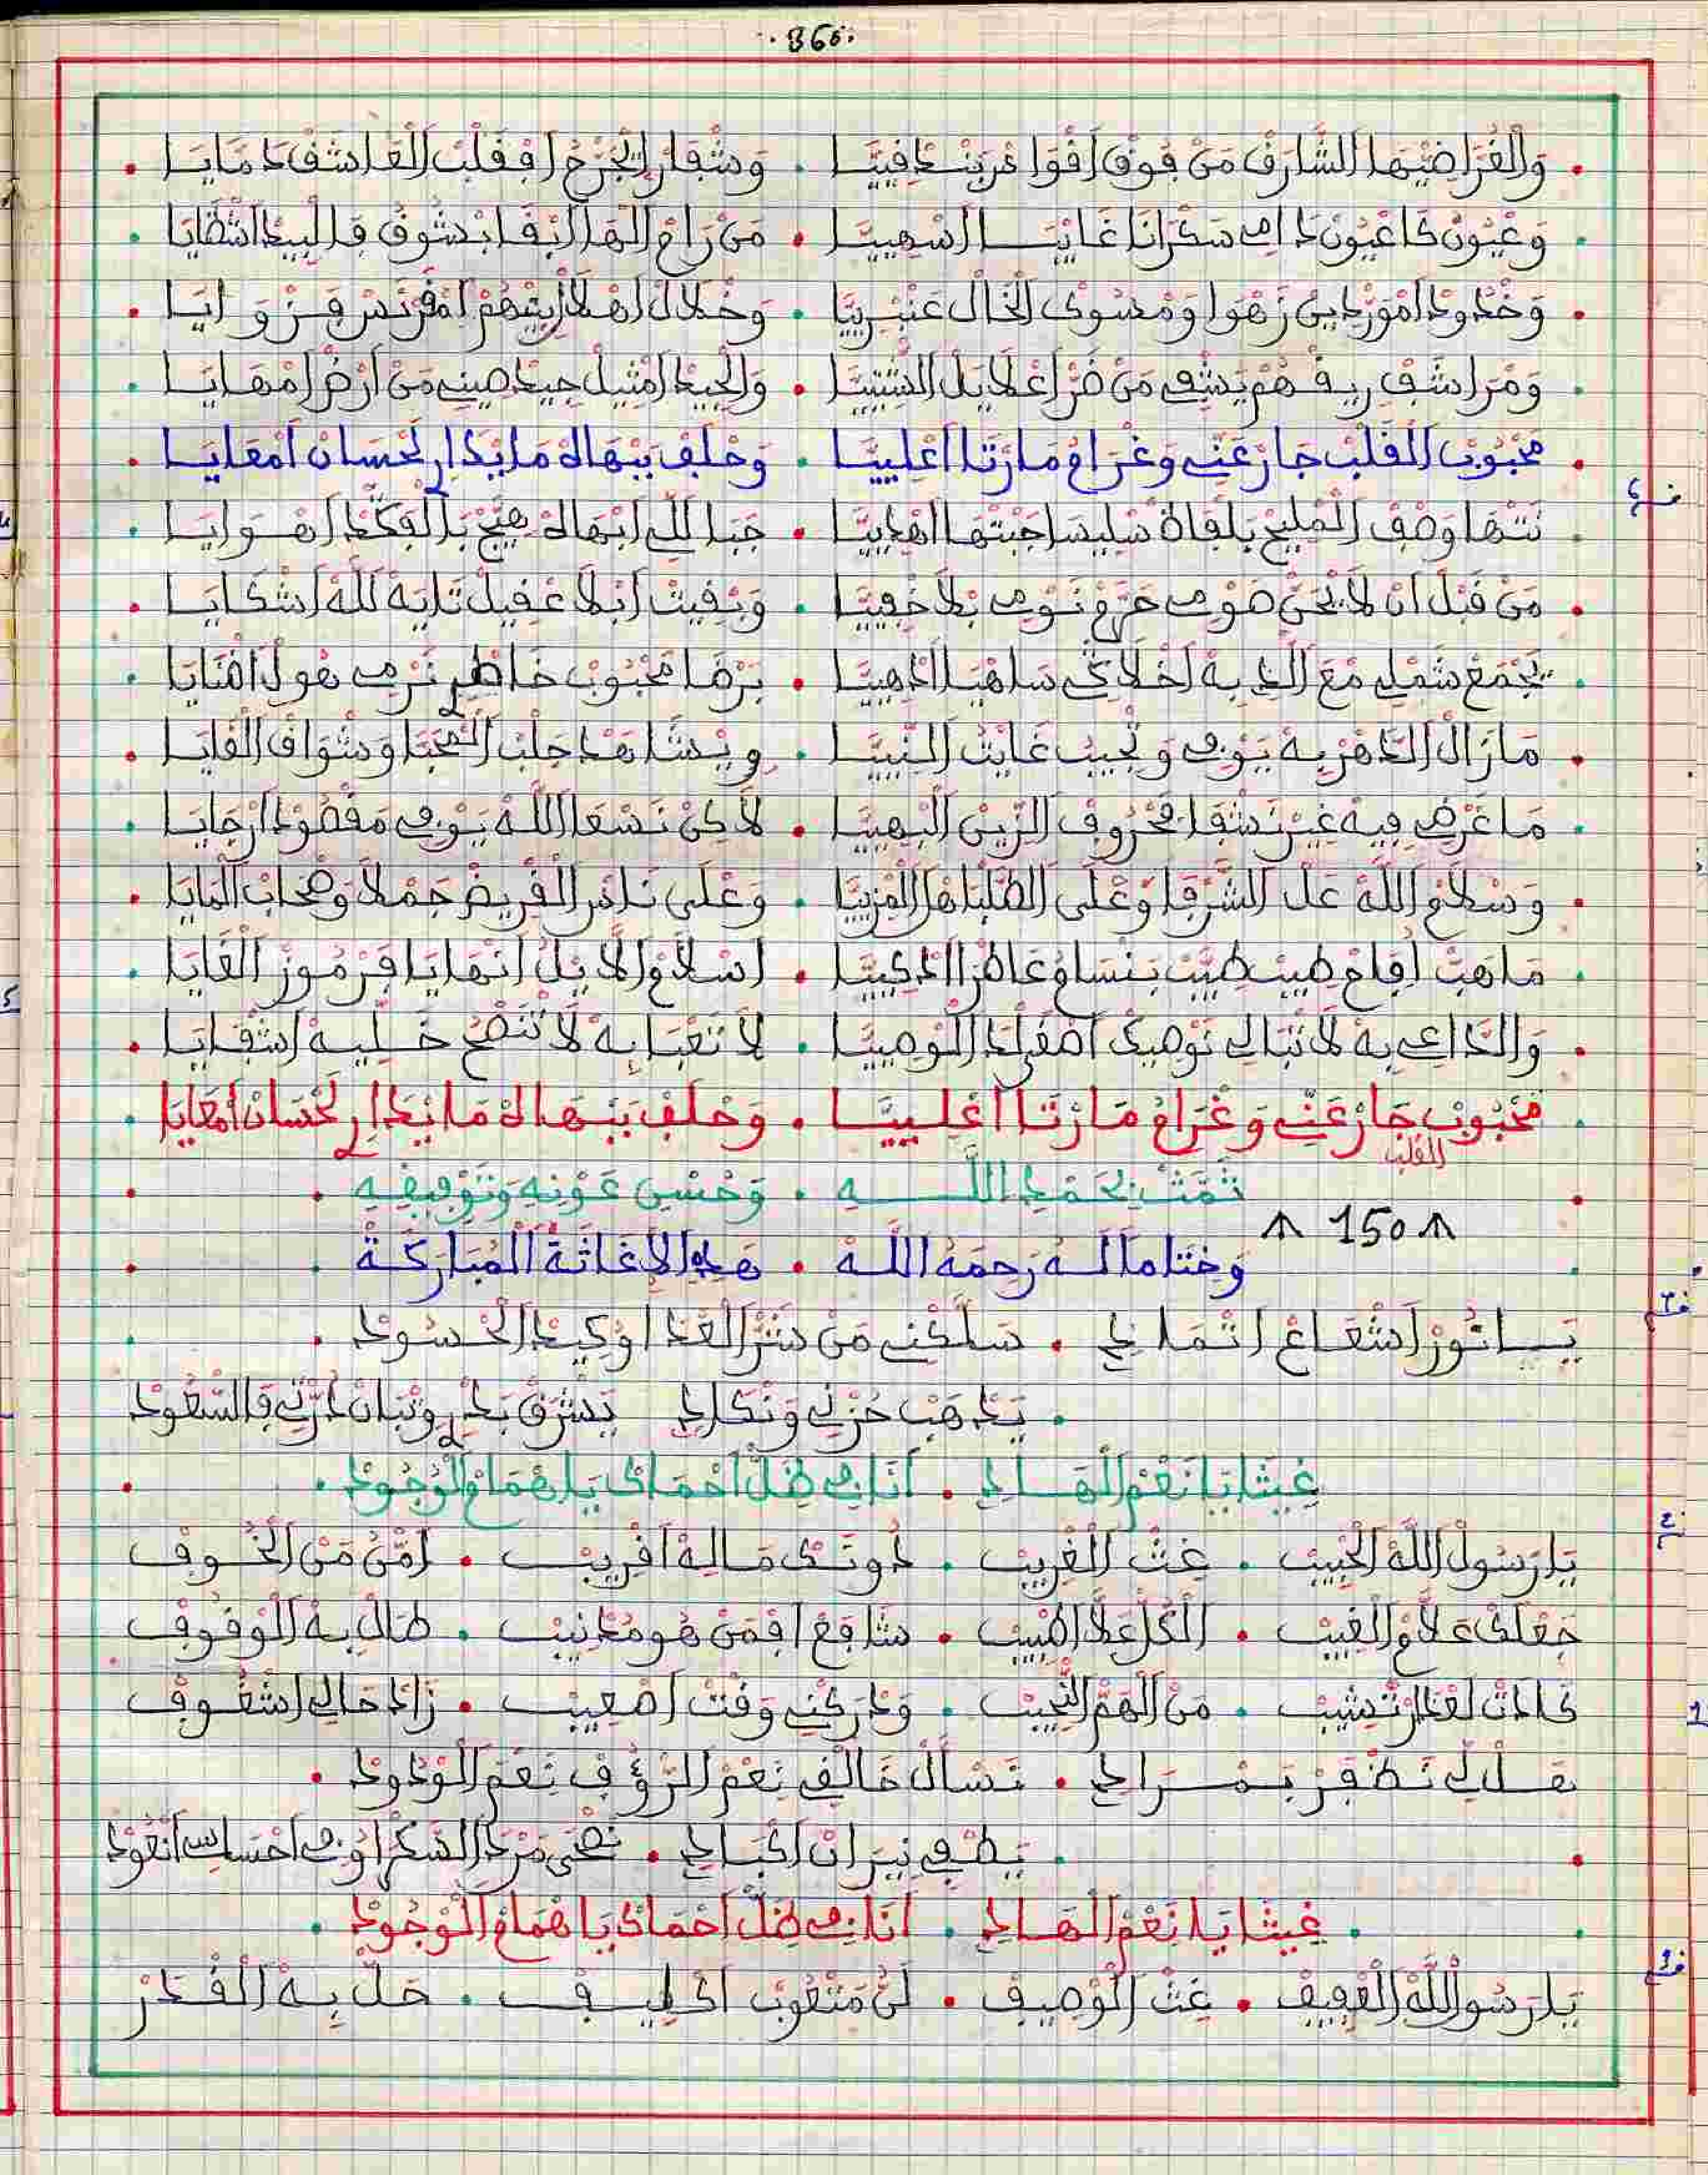 .366.
وَالْغُرَا ضَيْهَا الشَّارَقْ مَنْ فُوقْ اقْوَا غْرَبْ خَافِيَّا . وَشْفَارْ اتْجَرَّحْ افْقَلْبْ الْعَاشَقْ دَمَايَا
وَعْيُونْ كَاعْيُونْ دَامِي سَكْرَانَا غَايْبَا اسْهِيَّا . مَنْ رَاحْ الْهَا ابْقَا بْشُوفْ فَالْبِيدْ اشْظَايَا
وَخْدُودْ امْوَرْدِينْ زَهْوَا وَمْسُوكْ الْخَالْ عَنْبْرِيَّا . وَخْلَالْ اهْلَا ايْتْهُمْ امْفَرْنَسْ فَزْوَايَا
وَمْرَاشَفْ رِيقْهُمْ يَشْفِي مَنْ ضَرّ اعْلَايَلْ السّْنِيَّا . وَالْجِيدْ امْثِيلْ جِيدْ صِينِي مَنْ أَرْضْ امْهَايَا
مَحْبُوبْ الْقَلْبْ جَارْ عَنِّي وَغْرَامُ مَا رْثَا اعْلِيَّا . وَحْلَفْ بَبْهَاهْ مَا يْدَارِي لَحْسَانْ امْعَايَا
نَتْهَا وَصْفْ الْمْلِيحْ بَلْقَاهْ سْلِيسَا جِبْتْهَا اهْدِيَّا . جَبَا لَلِّي ابْهَاهْ هِيَّجْ بَالْفَكْدْ اهْوَايَا
مَنْ قَبْلْ انْ لَا نْحَنّْ ضَوْمِي حَرَّمْ نَوْمِي بْلَا خْفِيَّا . وَبْقِيتْ ابْلَا عْقِيلْ تَايَهْ لَلَّهْ اشْكَايَا
يَجْمَعْ شَمْلِي مْعَ الَّذِي بِهْ اخْلَاقِي سَاهْيَا ادْهِيَّا . بَرْضَا مَحْبُوبْ خَاطْرِي نَرْمِي هُولْ افْنَايَا
مَازَالْ الدَّهْرْ بِهْ يَوْفِي وَنْجِيبْ غَايْتْ النِّيَّا . وِيْشَاهَدْ جَلْبْ الْمْحَبَّا وَشْوَاقْ الْقَايَا
مَا غَرْضِي فِيهْ غِيرْ نَشْفَا بَحْرُوفْ الزِّينْ الْبْهِيَّا . لَاكِنْ نَسْعَا اللَّهْ يَوْفِي مَقْصُودْ ارْجَايَا
وَسْلَامْ اللَّهْ عَلْ الشَّرْفَا وَعْلَى الطُّلْبَا هْلْ الْمْزِيَّا . وَعْلَى نَاسْ الْقْرِيضْ جَمْلَا وَصْحَابْ الْمَايَا
مَا هَبّْ افَاحْ طِيبْ طِيَّبْ بَنْسَامُ عَاطْرَا ادْكِيَّا . اسْلَامْ الَّا يْلُ انْهَايَا فَرْمُوزْ الْغَايَا
وَالدَّاعِي بِهْ لَا تْبَالِي نَوْصِيكْ احْفَظْ الْوْصِيَّا . لَا تَعْبَا بِهْ لَا تَنْصَحْ خَلِّيهْ اشْقَايَا
مَحْبُوبْ الْقَلْبْ جَارْ عَنِّي وَغْرَامُ مَا رْثَا اعْلِيَّا . وَحْلَفْ بَبْهَاهْ مَا يْدَارِي لَحْسَانْ امْعَايَا
تَمَّتْ بِحَمْدِ اللَّهِ . وَحُسْنِ عَوْنِهِ وَتَوْفِيقِهِ
150
وَخِتَاماً لَهُ رَحِمَهُ اللَّهْ . هَذِهِ الإِغَاثَةُ الْمُبَارَكَةْ
يَا نُورْ اشْعَاعْ اتْمَادِي . سَلَّكْنِي مَنْ شَرّْ الْعْدَا وْكِيدْ الْحْسُودْ
يَدْهَبْ حُزْنِي وَنْكَادِي . يَشْرَقْ بَدْرِي وَتْبَانْ دُرّْتِي فَالسّْعُودْ
غِيثْنَا يَا نَعْمْ الْهَادِي . أَنَا فِي ظَلّْ احْمَاكْ يَا هْمَامْ الْوْجُودْ
يَا رَسُولْ اللَّهْ الْحْبِيبْ . غِثْ الْغْرِيبْ . دُونَكْ مَالِهْ اقْرِيبْ . امّْنُ مَنْ الْخُوفْ
جَعْلَكْ عَلَّامْ الْغِيبْ . الْكُلّْ عَلَّا اطْبِيبْ . شَافَعْ افْمَنْ هُو مُدْنِيبْ . طَالْ بِهْ الْوْقُوفْ
كَادَتْ لَعْدَا تْشِيبْ . مَنْ الْهَمّْ النّْحِيبْ . وَدْرَكْنِي وَقْتْ اصْعِيبْ . زَادْ حَالِي اشْغُوفْ
عَلِّي نَظْفَرْ بَمْرَادِي . نَسْأَلْ خَالْقِي نِعْمْ الرّْؤُفْ نِعْمْ الْوْدُودْ
يَطْفِي نِيرَانْ اكْبَادِي . نَضْحَى مَنْ بَرْدْ السّْكَرْ اوْفِي احْسَابِي انْعُودْ
غِيثْنَا يَا نَعْمْ الْهَادِي . أَنَا فِي ظَلّْ احْمَاكْ يَا هْمَامْ الْوْجُودْ
يَا رَسُولْ اللَّهْ الْعْفِيفْ . غِثْ الْوْصِيفْ . لَنُّ مَتْعُوبْ اكْلِيفْ . حَلّْ بِهْ الْقْدَرْ